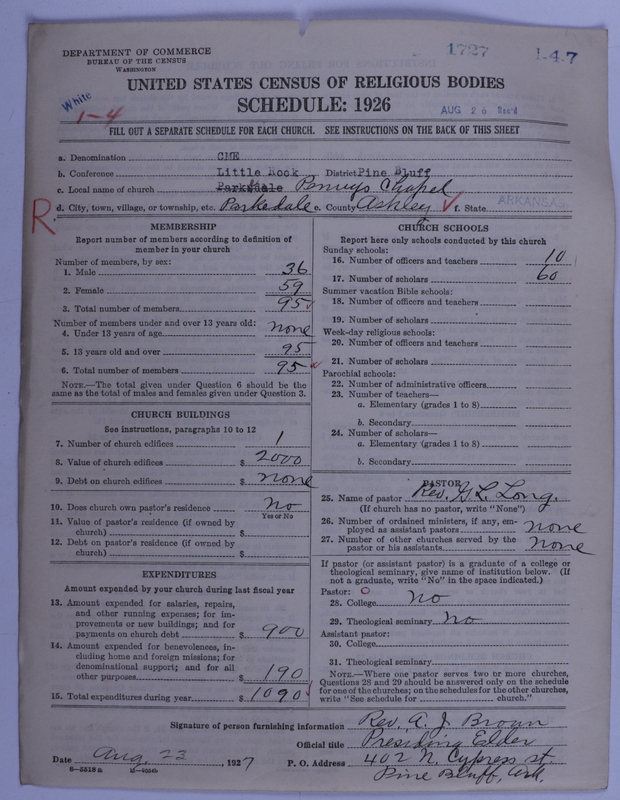 DEPARTMENT OF COMMERCE
BUREAU OF THE CENSUS
WASHINGTON
1727
1-4-7
UNITED STATES CENSUS OF RELIGIOUS BODIES
SCHEDULE: 1926
White
1-4
AUG 26 Rec'd
FILL OUT A SEPARATE SCHEDULE FOR EACH CHURCH. SEE INSTRUCTIONS ON THE BACK OF THIS SHEET
a. Denomination CME
b. Conference Little Rock District Pine Bluff
c. Local name of church Chapel
R. d. City, town, village, or township, etc. Parkedale e. County Ashley f. State ARKANSAS
MEMBERSHIP
Report number of members according to definition of
member in your church
Number of members, by sex:
1. Male 36
2. Female 59
3. Total number of members 95
Number of members under and over 13 years old:
4. Under 13 years of age none
5. 13 years old and over 95
6. Total number of members 95
NOTE.—The total given under Question 6 should be the
same as the total of males and females given under Question 3.
CHURCH BUILDINGS
See instructions, paragraphs 10 to 12
7. Number of church edifices 1
8. Value of church edifices $ 2000
9. Debt on church edifices $ none
10. Does church own pastor's residence no
Yes or No
11. Value of pastor's residence (if owned by
church) $
12. Debt on pastor's residence (if owned by
church) $
EXPENDITURES
Amount expended by your church during last fiscal year
13. Amount expended for salaries, repairs,
and other running expenses; for im-
provements or new buildings; and for
payments on church debt $ 900
14. Amount expended for benevolences, in-
cluding home and foreign missions; for
denominational support; and for all
other purposes $ 190
15. Total expenditures during year $ 1090
CHURCH SCHOOLS
Report here only schools conducted by this church
Sunday schools:
16. Number of officers and teachers 10
17. Number of scholars 60
Summer vacation Bible schools:
18. Number of officers and teachers
19. Number of scholars
Week-day religious schools:
20. Number of officers and teachers
21. Number of scholars
Parochial schools:
22. Number of administrative officers
23. Number of teachers—
a. Elementary (grades 1 to 8)
b. Secondary
24. Number of scholars—
a. Elementary (grades 1 to 8)
b. Secondary
PASTOR
25. Name of pastor Rev. G. L. Long.
(If church has no pastor, write "None")
26. Number of ordained ministers, if any, em-
ployed as assistant pastors none
27. Number of other churches served by the
pastor or his assistants none
If pastor (or assistant pastor) is a graduate of a college or
theological seminary, give name of institution below. (If
not a graduate, write "No" in the space indicated.)
Pastor: O
28. College no
29. Theological seminary no
Assistant pastor:
30. College
31. Theological seminary
NOTE.—Where one pastor serves two or more churches,
Questions 28 and 29 should be answered only on the schedule
for one of the churches; on the schedules for the other churches,
write "See schedule for church."
Signature of person furnishing information Rev. A. J. Brown
Official title Presiding Elder
Date Aug, 23, 1927 P. O. Address 402 N. Cypress st.
Pine Bluff, Ark.